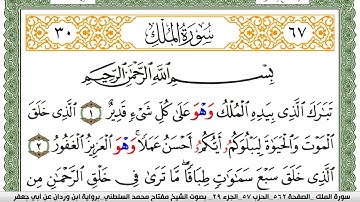 ٦٧ سُورَةُ المُلْكِ ٣٠
بِسْمِ اللَّهِ الرَّحْمَٰنِ الرَّحِيمِ
تَبَارَكَ الَّذِي بِيَدِهِ الْمُلْكُ وَهْوَ عَلَىٰ كُلِّ شَيْءٍ قَدِيرٌ ١ الَّذِي خَلَقَ
الْمَوْتَ وَالْحَيَوٰةَ لِيَبْلُوَكُمُۥ أَيُّكُمُۥ أَحْسَنُ عَمَلًا ۚ وَهْوَ الْعَزِيزُ الْغَفُورُ ٢
الَّذِي خَلَقَ سَبْعَ سَمَٰوَٰتٍ طِبَاقًا ۖ مَّا تَرَىٰ فِي خَلْقِ الرَّحْمَٰنِ مِن
سورة الملك . الصفحة ٥٦٢ . الحزب ٥٧ . الجزء ٢٩ . بصوت الشيخ مفتاح محمد السلطني. برواية ابن وردان عن أبي جعفر